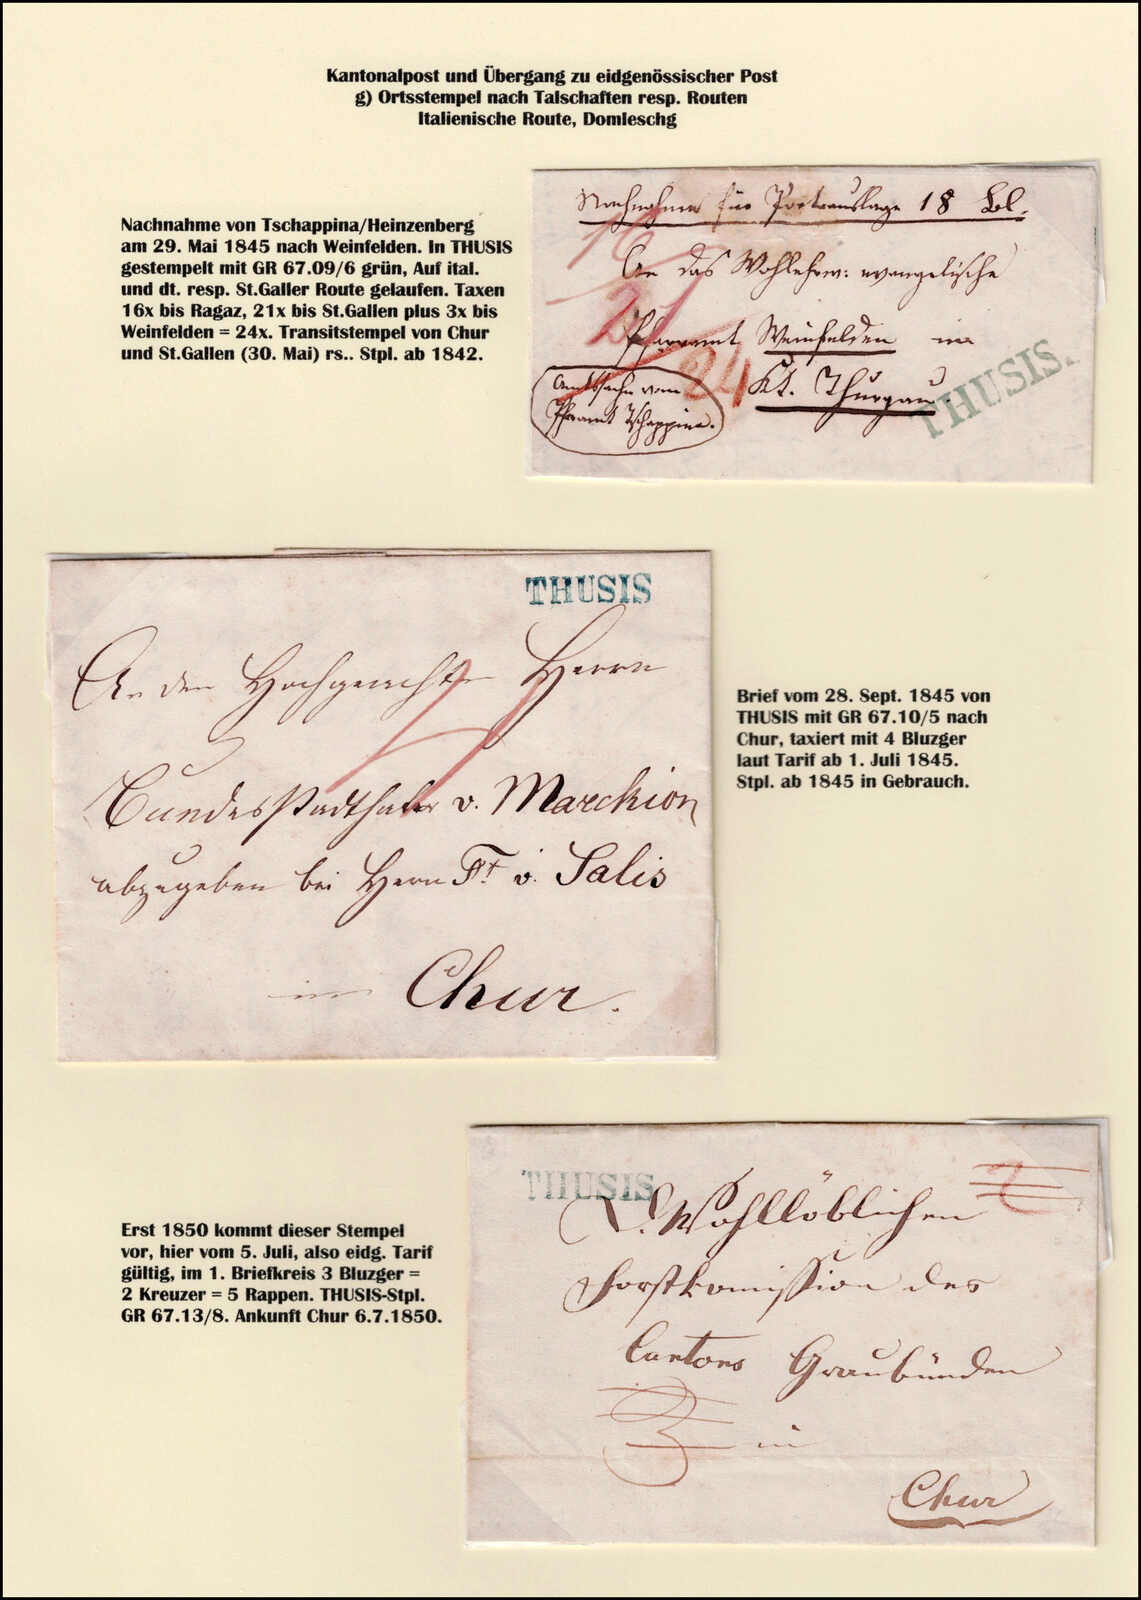 Kantonalpost und Übergang zu eidgenössischer Post
g) Ortsstempel nach Talschaften resp. Routen
Italienische Route, Domleschg
Nachnahme von Tschappina/Heinzenberg
am 29. Mai 1845 nach Weinfelden. In THUSIS
gestempelt mit GR 67.09/6 grün, Auf ital.
und dt. resp. St.Galler Route gelaufen. Taxen
16x bis Ragaz, 21x bis St.Gallen plus 3x bis
Weinfelden = 24x. Transitstempel von Chur
und St.Gallen (30. Mai) rs.. Stpl. ab 1842.
Nachnahme für Portoauslage 18 bl.
16
An das Wohlehrw: evangelische
21
Pfarramt Weinfelden im
24
Kt. Thurgau.
THUSIS.
Amtssache vom
Pframt Tschappina.
THUSIS
An den Hochgeachten Herrn
4
Bundesstadthalter v. Marchion
abzugeben bei Herrn Ft. v. Salis
in Chur.
Brief vom 28. Sept. 1845 von
THUSIS mit GR 67.10/5 nach
Chur, taxiert mit 4 Bluzger
laut Tarif ab 1. Juli 1845.
Stpl. ab 1845 in Gebrauch.
THUSIS
Wohllöblichen
Forstkomission des
Cantons Graubünden
3 in
Chur
Erst 1850 kommt dieser Stempel
vor, hier vom 5. Juli, also eidg. Tarif
gültig, im 1. Briefkreis 3 Bluzger =
2 Kreuzer = 5 Rappen. THUSIS-Stpl.
GR 67.13/8. Ankunft Chur 6.7.1850.